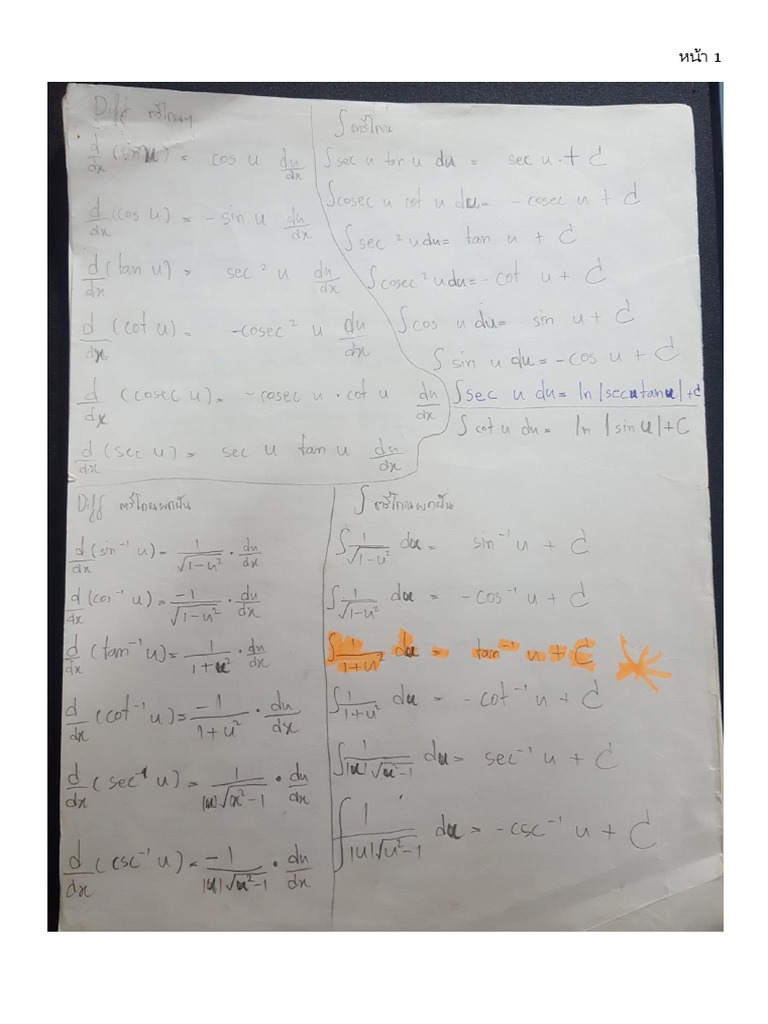 หน้า 1
Diff ตรีโกณฯ
d/dx (sin u) = cos u du/dx
d/dx (cos u) = - sin u du/dx
d/dx (tan u) = sec² u du/dx
d/dx (cot u) = -cosec² u du/dx
d/dx (cosec u) = - cosec u · cot u du/dx
d/dx (sec u) = sec u tan u du/dx
∫ ตรีโกณ
∫ sec u tan u du = sec u + C
∫ cosec u cot u du = - cosec u + C
∫ sec² u du = tan u + C
∫ cosec² u du = - cot u + C
∫ cos u du = sin u + C
∫ sin u du = - cos u + C
∫ sec u du = ln |sec u tan u| + C
∫ cot u du = ln |sin u| + C
Diff ตรีโกณผกผัน
d/dx (sin⁻¹ u) = 1/√(1-u²) · du/dx
d/dx (cos⁻¹ u) = -1/√(1-u²) · du/dx
d/dx (tan⁻¹ u) = 1/(1+u²) · du/dx
d/dx (cot⁻¹ u) = -1/(1+u²) · du/dx
d/dx (sec⁻¹ u) = 1/(|u|√(u²-1)) · du/dx
d/dx (csc⁻¹ u) = -1/(|u|√(u²-1)) · du/dx
∫ ตรีโกณผกผัน
∫ 1/√(1-u²) du = sin⁻¹ u + C
∫ 1/√(1-u²) du = - cos⁻¹ u + C
∫ 1/(1+u²) du = tan⁻¹ u + C
∫ 1/(1+u²) du = - cot⁻¹ u + C
∫ 1/(|u|√(u²-1)) du = sec⁻¹ u + C
∫ 1/(|u|√(u²-1)) du = - csc⁻¹ u + C